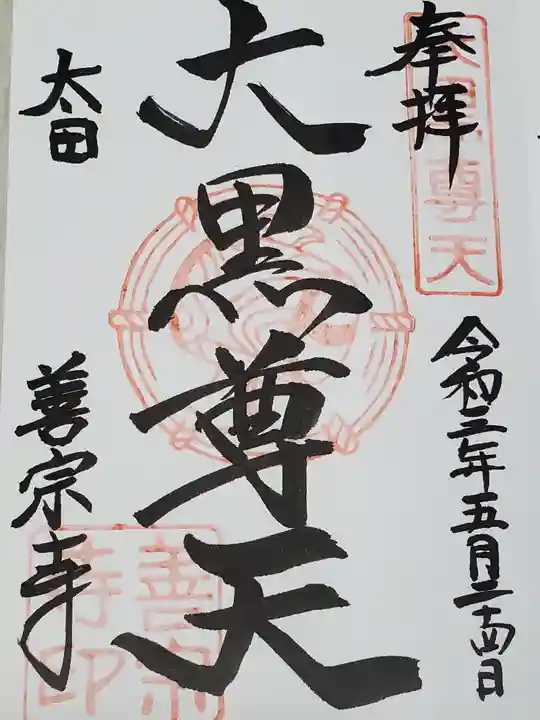 奉拝
大黒尊天
令和三年五月二十四日
大黒尊天
太田
善宗寺
善宗寺印